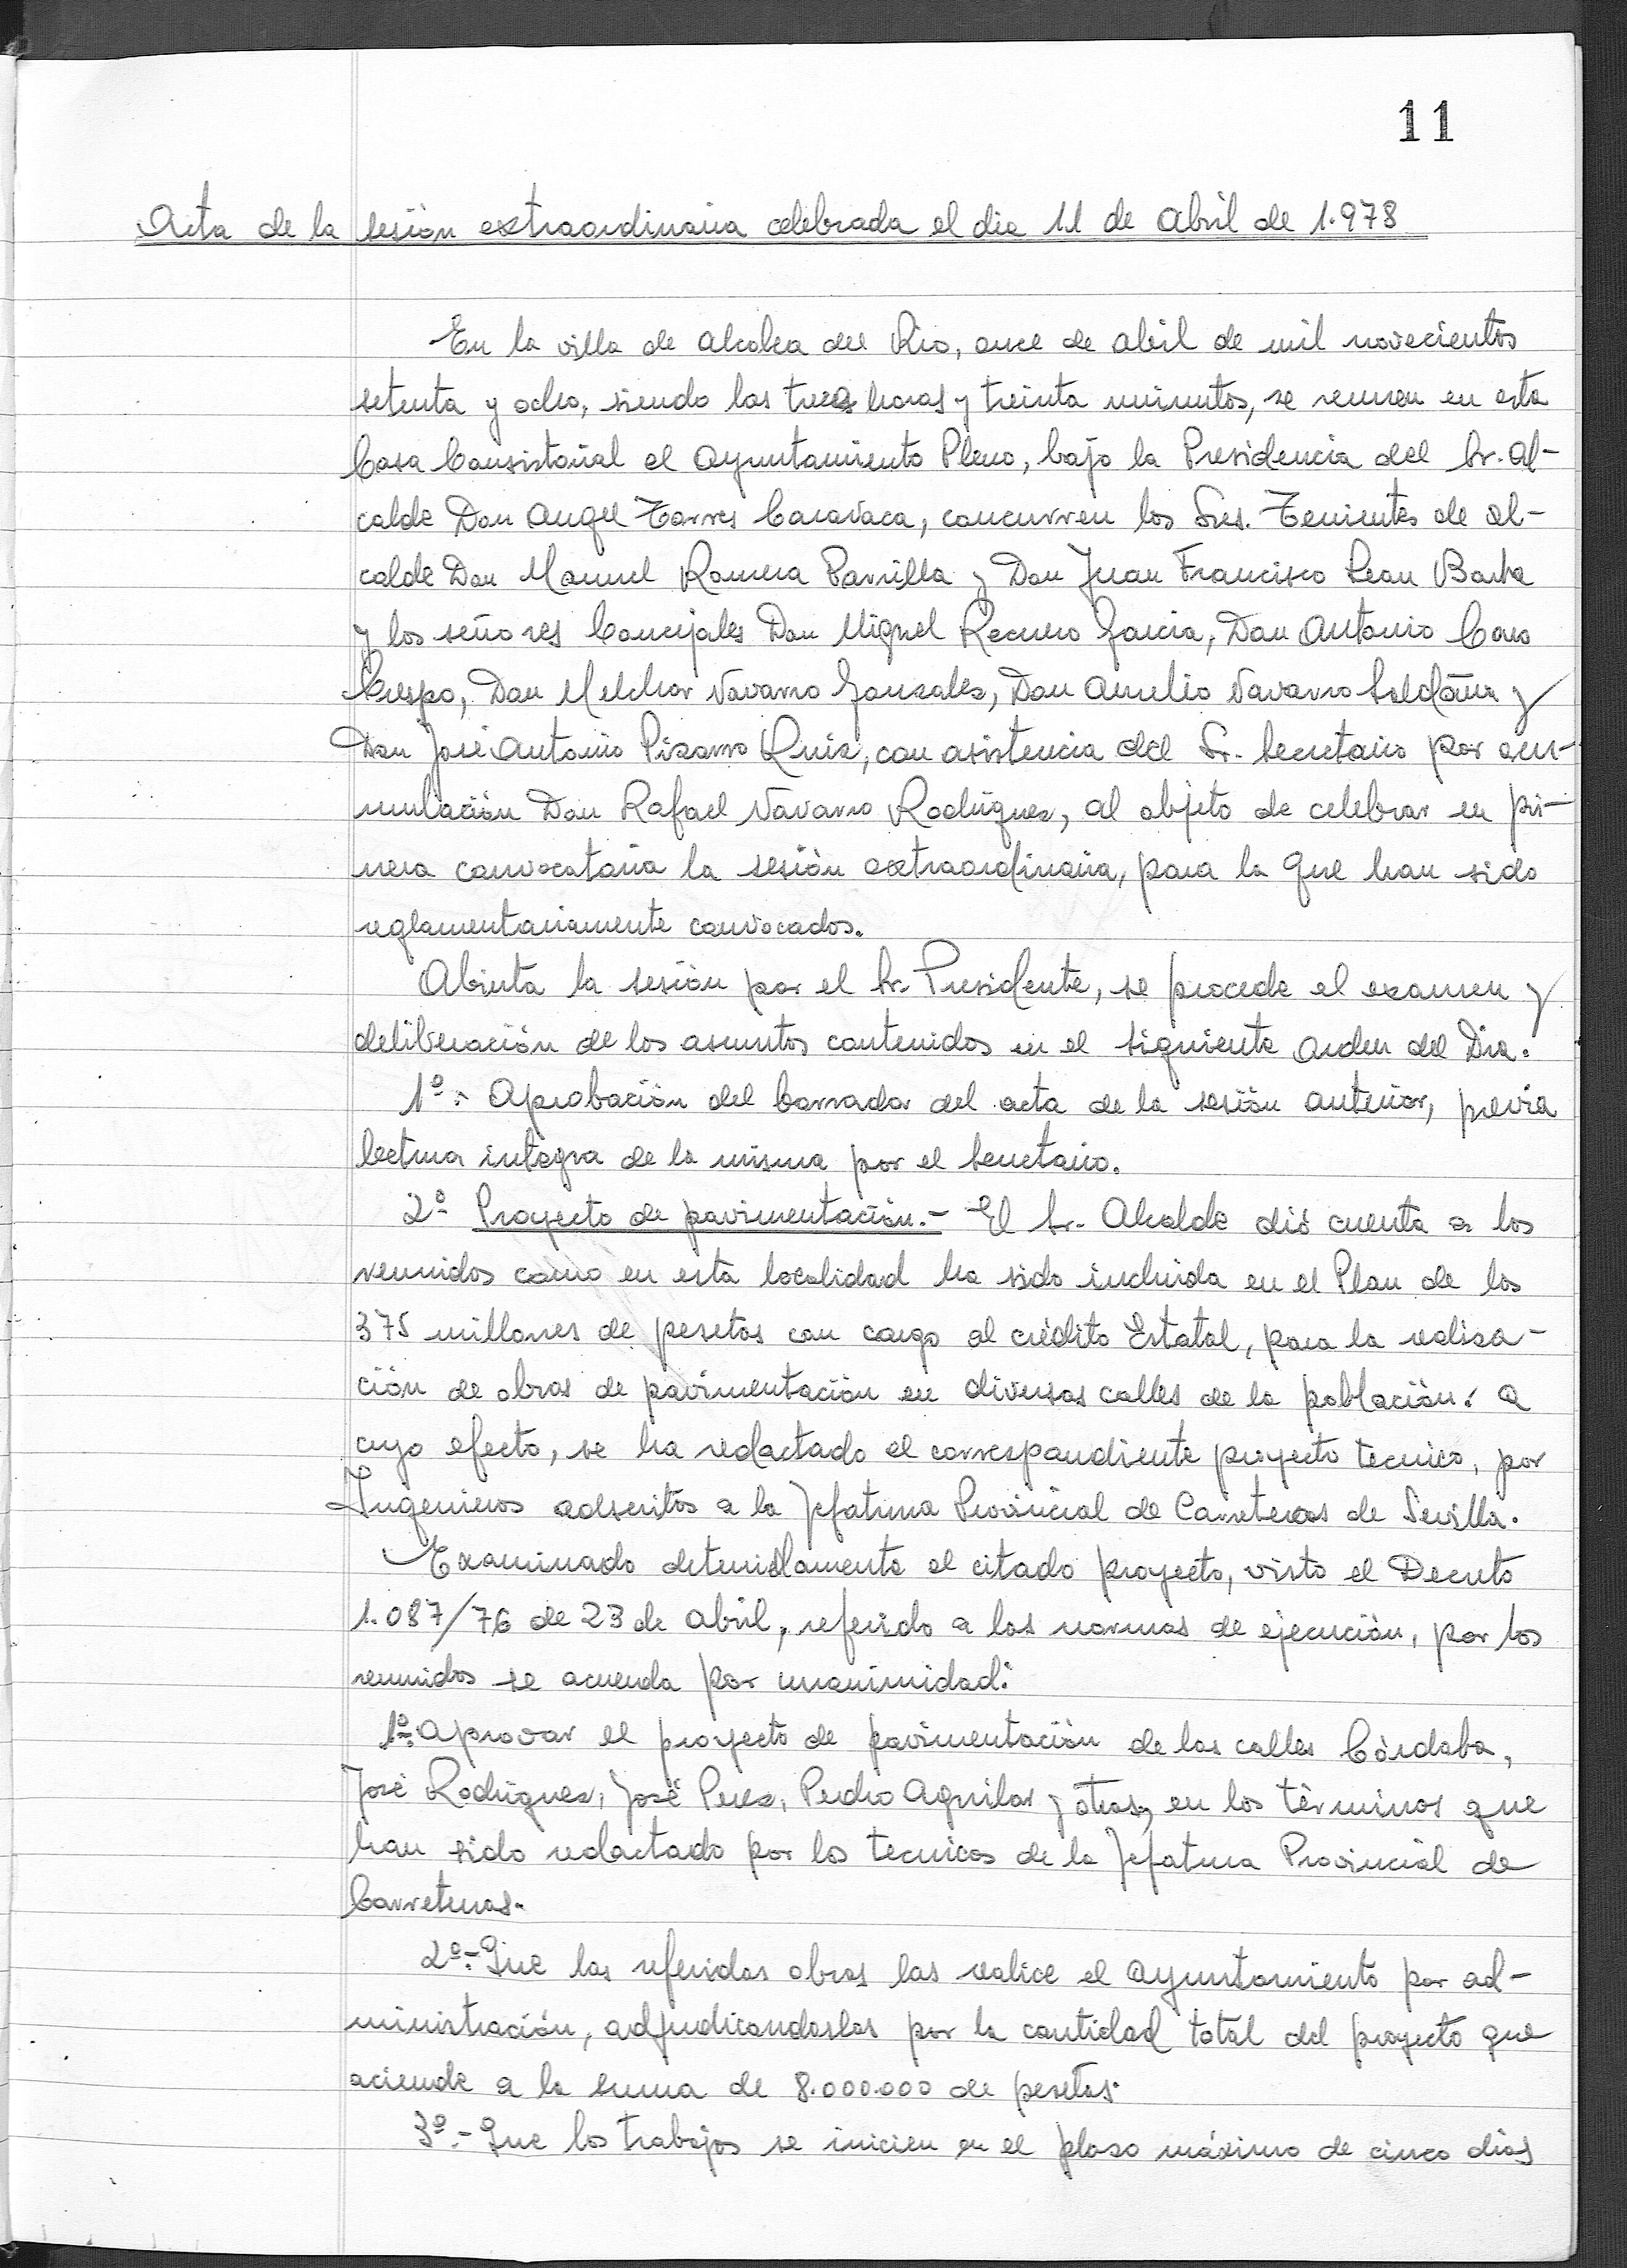 11
Acta de la sesión extraordinaria celebrada el dia 11 de Abril de 1.978
En la villa de Alcolea del Rio, once de abril de mil novecientos
setenta y ocho, siendo las trece horas y treinta minutos, se reunen en esta
Casa Consistorial el Ayuntamiento Pleno, bajo la Presidencia del Sr. Al-
calde Don Angel Torres Caravaca, concurren los Sres. Tenientes de Al-
calde Don Manuel Romera Parrilla y Don Juan Francisco Leon Barba
y los señores Concejales Don Miguel Recuero Garcia, Don Antonio Caro
Crespo, Don Melchor Navarro Gonzalez, Don Aurelio Navarro Saldaña y
Don José Antonio Pizarro Ruiz, con asistencia del Sr. Secretario por acu-
mulación Don Rafael Navarro Rodriguez, al objeto de celebrar en pri-
mera convocatoria la sesión extraordinaria, para la que han sido
reglamentariamente convocados.
Abierta la sesión por el Sr. Presidente, se procede el examen y
deliberación de los asuntos contenidos en el siguiente Orden del Dia.
1º.- Aprobación del borrador del acta de la sesión anterior, previa
lectura integra de la misma por el Secretario.
2º Proyecto de pavimentación.- El Sr. Alcalde dió cuenta a los
reunidos como en esta localidad ha sido incluida en el Plan de los
375 millones de pesetas con cargo al crédito Estatal, para la realiza-
ción de obras de pavimentación en diversas calles de la población. A
cuyo efecto, se ha redactado el correspondiente proyecto tecnico, por
Ingenieros adscritos a la Jefatura Provincial de Carreteras de Sevilla.
Examinado detenidamente el citado proyecto, visto el Decreto
1.087/76 de 23 de Abril, referido a las normas de ejecución, por los
reunidos se acuerda por unanimidad:
1º.- Aprovar el proyecto de pavimentación de las calles Córdoba,
José Rodriguez, José Perez, Pedro Aguilar y otras, en los términos que
han sido redactado por los tecnicos de la Jefatura Provincial de
Carreteras.
2º.- Que las referidas obras las realice el Ayuntamiento por ad-
ministración, adjudicandoslas por la cantidad total del proyecto que
aciende a la suma de 8.000.000 de pesetas.
3º.- Que los trabajos se inicien en el plazo máximo de cinco dias